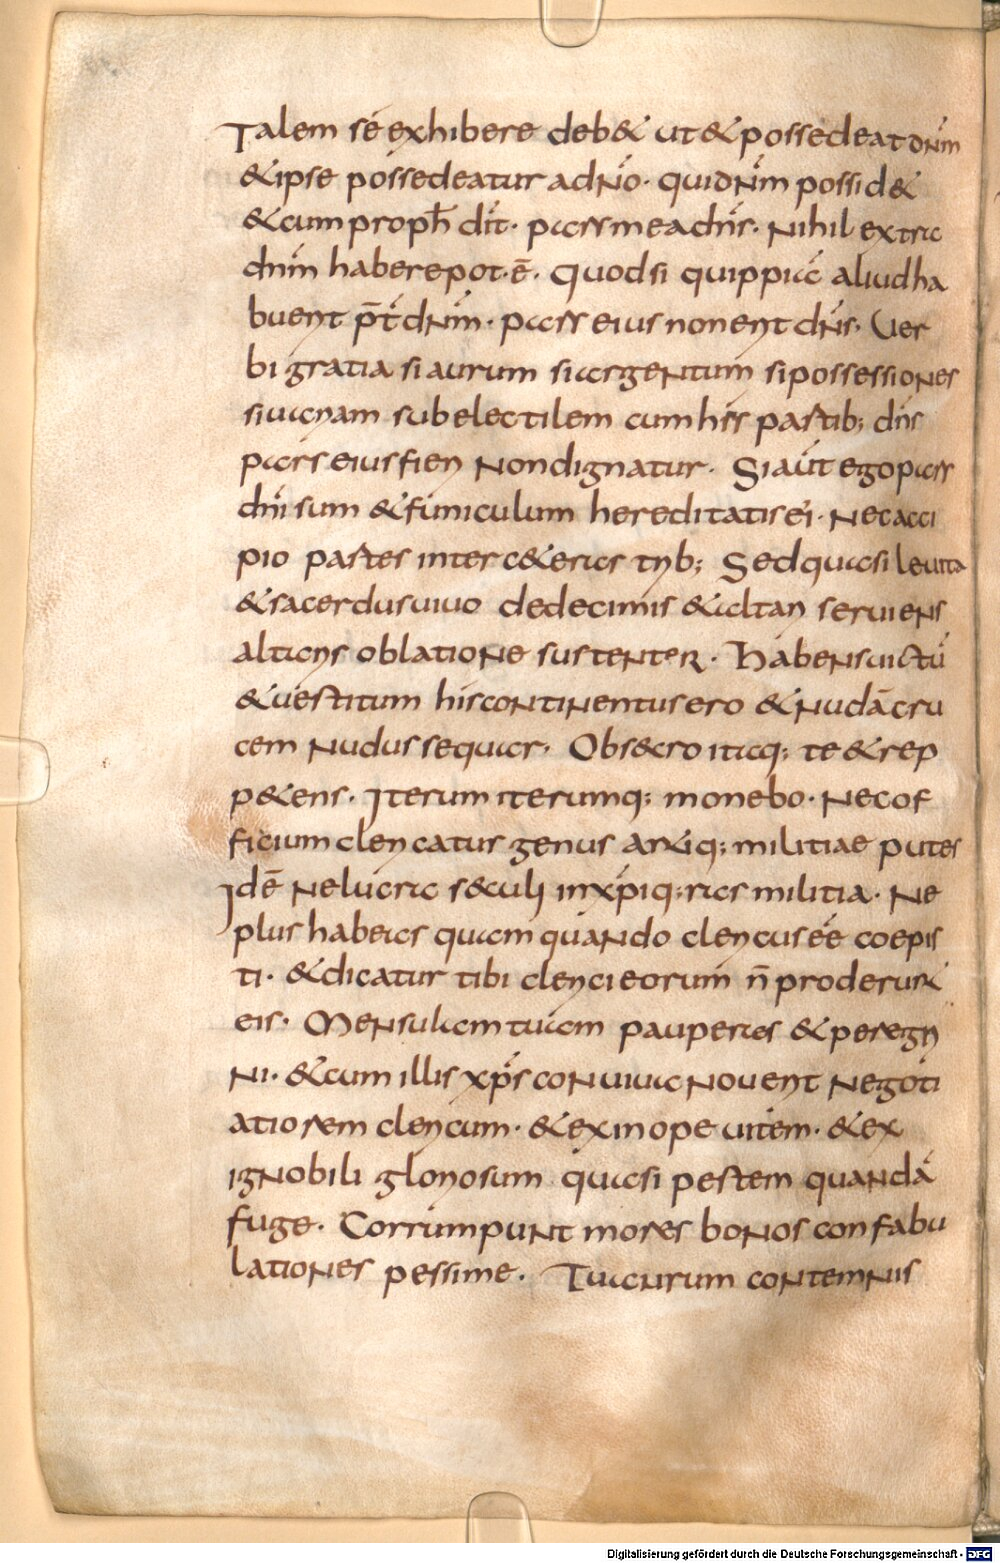 Talem sé exhibere deb& ut & possedeat dnm̄
& ipse possedeatur adnō. qui dnm̄ possid&
& cum proph̄ dīt. pars mea dn̄s. Nihil extra
dnm̄ habere pot.ē. Quodsi quippiā aliud ha
buerit p̄t dnm̄. pars eius non erit dn̄s. Ver
bi gratia si aurum si argentum si possessiones
si uariam subelectilem cum hiīs partib; dn̄s
pars eius fieri non dignatur. Si aūt ego pars
dnī sum & funiculum hereditatis eī. Nec acci
pio partes inter c&eras trib; Sed quasi leuita
& sacerdus uiuo de decimis & altari seruiens
altaris oblatione sustenter. Habens uictū
& uestitum his contintentus ero & nudā cru
cem nudus sequar. Obsecro itaq; te & rep
p&ens. Iterum iterumq; monebo. Nec of
ficium clericatus genus antiq; militiae putes
Idē ne lucra s&culi in xp̄i q;ras militia. Ne
plus habeas quam quando clericus eē coepis
ti. & dicatur tibi clerici eorum n̄ proderunt
eis. Mensulam tuam pauperes & peregri
ni. & cum illis xp̄s conuiua nouerit negoti
atiorem clericum. & ex inope uitem. & ex
ignobili gloriosum quasi pestem quandā
fuge. Corrumpunt mores bonos confabu
lationes pessime. Tu aurum contemnis
Digitalisierung gefördert durch die Deutsche Forschungsgemeinschaft - DFG